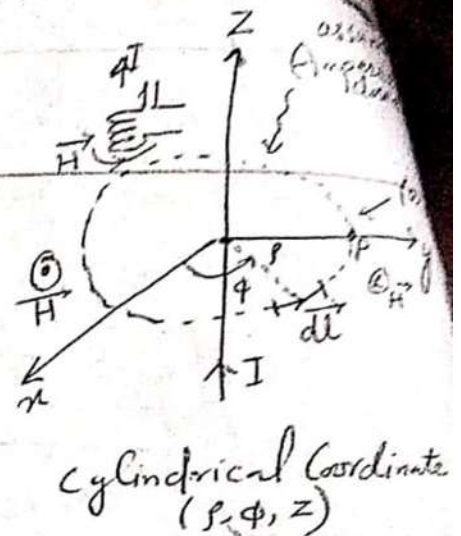 Z
I
H
H
ρ
ϕ
P
y
H
dl
x
I
Cylindrical Coordinate
(ρ, ϕ, Z)